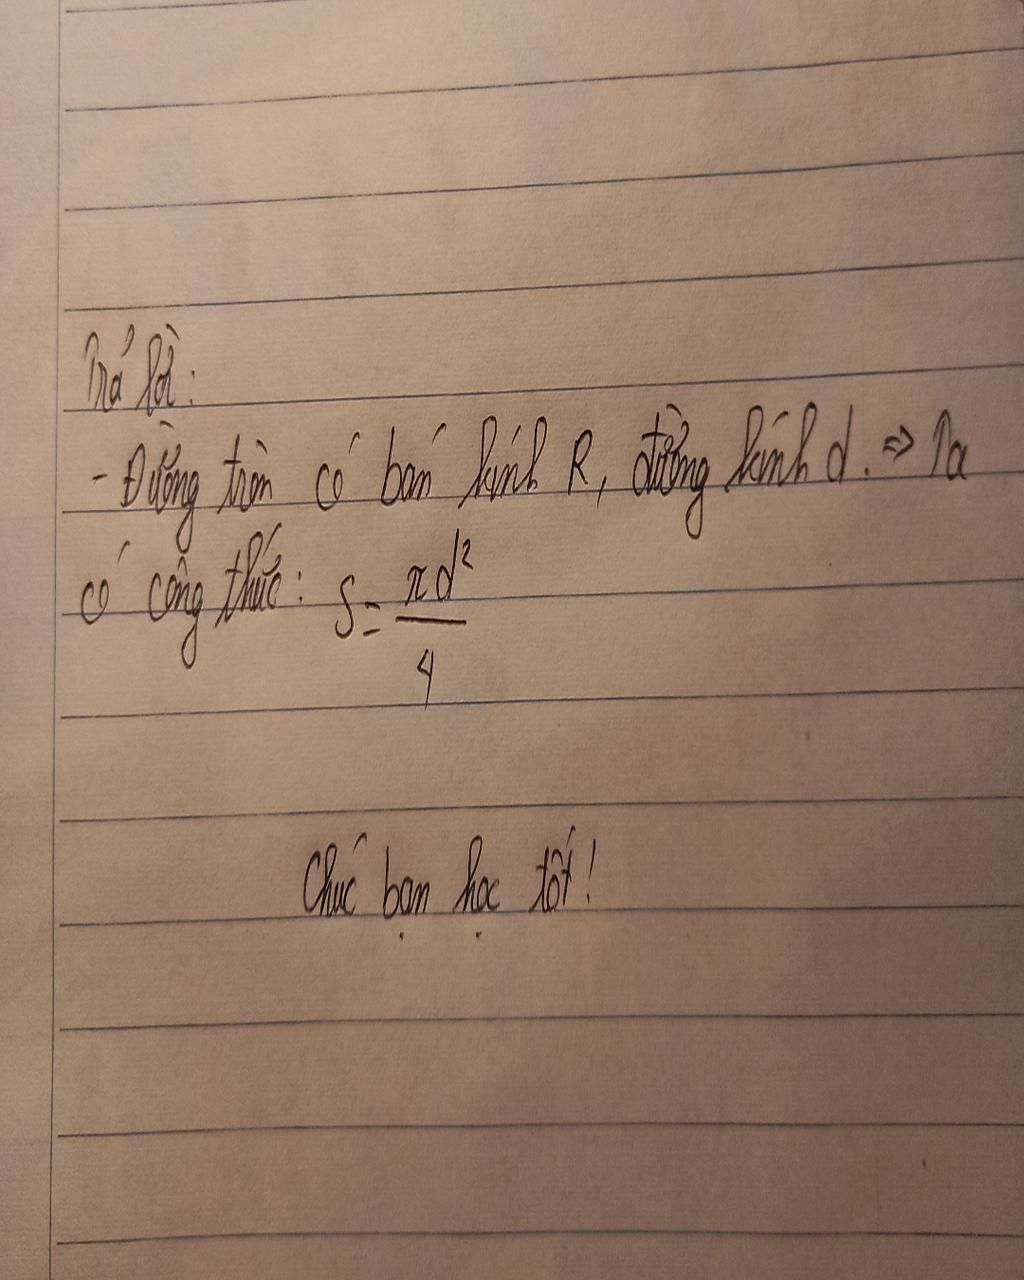 Trả lời:
- Đường tròn có bán kính R, đường kính d. => Ta
có công thức: S = πd²/4
Chúc bạn học tốt!